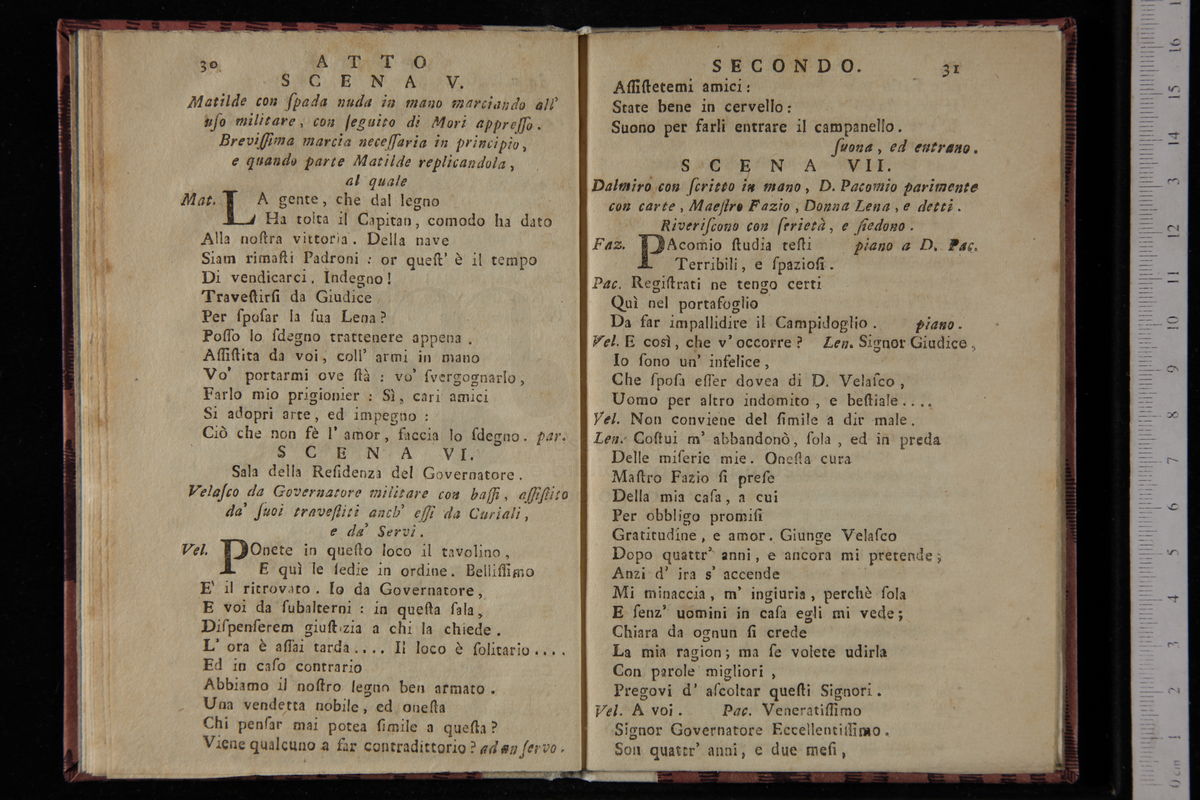 30
ATTO
SCENA V.
Matilde con ſpada nuda in mano marciando all'
uſo militare, con ſeguito di Mori appreſſo.
Breviſſima marcia neceſſaria in principio,
e quando parte Matilde replicandola,
al quale
Mat. LA gente, che dal legno
Ha tolta il Capitan, comodo ha dato
Alla noſtra vittoria. Della nave
Siam rimaſti Padroni: or queſt' è il tempo
Di vendicarci. Indegno!
Traveſtirſi da Giudice
Per ſpoſar la ſua Lena?
Poſſo lo ſdegno trattenere appena.
Aſſiſtita da voi, coll' armi in mano
Vo' portarmi ove ſtà: vo' ſvergognarlo,
Farlo mio prigionier: Sì, cari amici
Si adopri arte, ed impegno:
Ciò che non fè l' amor, faccia lo ſdegno. par.
SCENA VI.
Sala della Reſidenza del Governatore.
Velaſco da Governatore militare con baffi, aſſiſtito
da' ſuoi traveſtiti anch' eſſi da Curiali,
e da' Servi.
Vel. POnete in queſto loco il tavolino,
E quì le ſedie in ordine. Belliſſimo
E' il ritrovato. Io da Governatore,
E voi da ſubalterni: in queſta ſala,
Diſpenſerem giuſtizia a chi la chiede.
L' ora è aſſai tarda.... Il loco è ſolitario....
Ed in caſo contrario
Abbiamo il noſtro legno ben armato.
Una vendetta nobile, ed oneſta
Chi penſar mai potea ſimile a queſta?
Viene qualcuno a far contradittorio? ad un ſervo.
SECONDO.
31
Aſſiſtetemi amici:
State bene in cervello:
Suono per farli entrare il campanello.
ſuona, ed entrano.
SCENA VII.
Dalmiro con ſcritto in mano, D. Pacomio parimente
con carte, Maeſtro Fazio, Donna Lena, e detti.
Riveriſcono con ſerietà, e ſiedono.
Faz. PAcomio ſtudia teſti piano a D. Pac.
Terribili, e ſpazioſi.
Pac. Regiſtrati ne tengo certi
Quì nel portafoglio
Da far impallidire il Campidoglio. piano.
Vel. E così, che v' occorre? Len. Signor Giudice,
Io ſono un' infelice,
Che ſpoſa eſſer dovea di D. Velaſco,
Uomo per altro indomito, e beſtiale....
Vel. Non conviene del ſimile a dir male.
Len. Coſtui m' abbandonò, ſola, ed in preda
Delle miſerie mie. Oneſta cura
Maſtro Fazio ſi preſe
Della mia caſa, a cui
Per obbligo promiſi
Gratitudine, e amor. Giunge Velaſco
Dopo quattr' anni, e ancora mi pretende;
Anzi d' ira s' accende
Mi minaccia, m' ingiuria, perchè ſola
E ſenz' uomini in caſa egli mi vede;
Chiara da ognun ſi crede
La mia ragion; ma ſe volete udirla
Con parole migliori,
Pregovi d' aſcoltar queſti Signori.
Vel. A voi. Pac. Veneratiſſimo
Signor Governatore Eccellentiſſimo.
Son quattr' anni, e due meſi,
0 cm 1 2 3 4 5 6 7 8 9 10 11 12 13 14 15 16